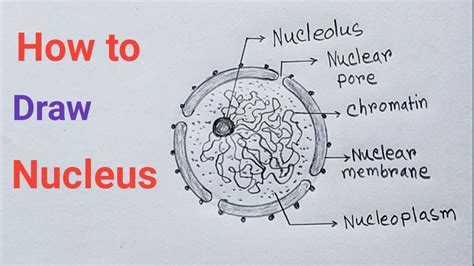 How to
Draw
Nucleus
Nucleolus
Nuclear
pore
Chromatin
Nuclear
membrane
Nucleoplasm